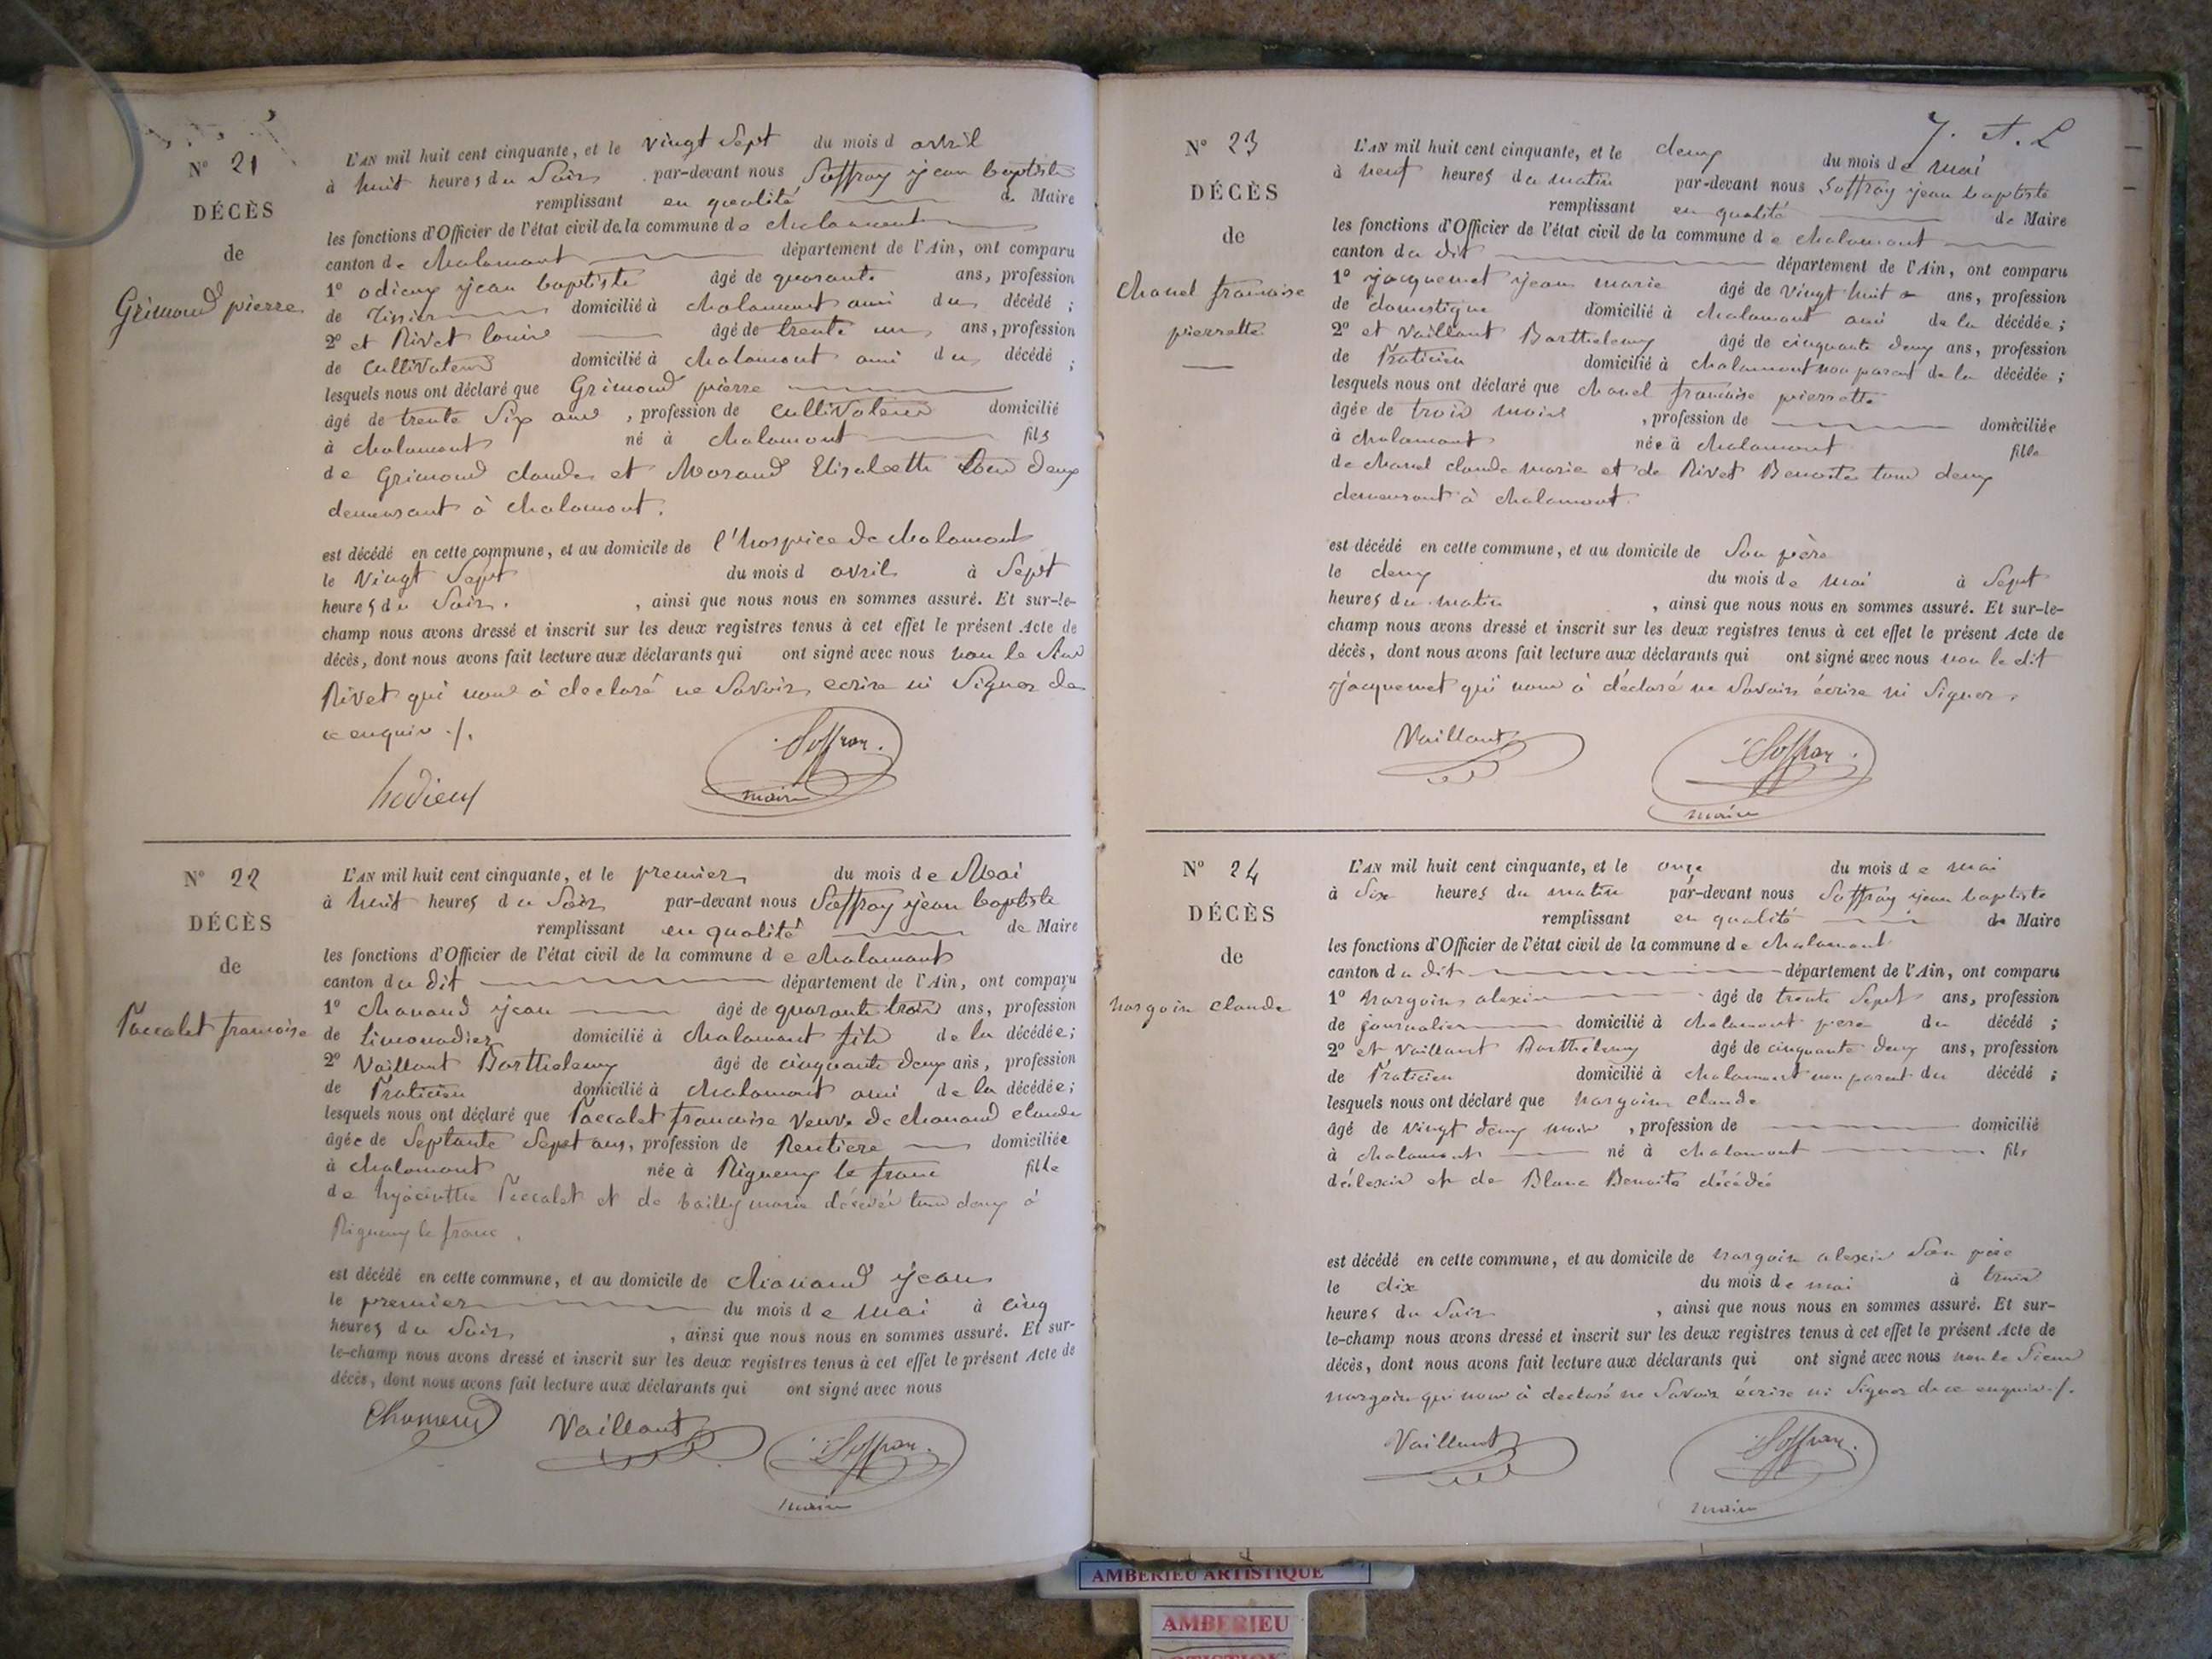 N° 21
DÉCÈS
de
Grimond pierre
L'AN mil huit cent cinquante, et le vingt Sept du mois d avril
à huit heures du Soir par-devant nous Soffray jean baptiste
remplissant en qualité de Maire
les fonctions d'Officier de l'état civil de la commune de chalamont
canton de chalamont département de l'Ain, ont comparu
1° odieux jean baptiste âgé de quarante ans, profession
de Tissier domicilié à chalamont ami du décédé ;
2° et Rivet louis âgé de trente un ans, profession
de Cultivateur domicilié à chalamont ami du décédé ;
lesquels nous ont déclaré que Grimond pierre
âgé de trente Six ans , profession de Cultivateur domicilié
à chalamont né à chalamont fils
de Grimond claude et Morand Elisabeth tous deux
demeurant à chalamont.
est décédé en cette commune, et au domicile de l'hospice de chalamont
le Vingt Sept du mois d avril à Sept
heures du Soir. , ainsi que nous nous en sommes assuré. Et sur-le-
champ nous avons dressé et inscrit sur les deux registres tenus à cet effet le présent Acte de
décès, dont nous avons fait lecture aux déclarants qui ont signé avec nous non le Sieur
Rivet qui nous à declaré ne Savoir ecrire ni Signer de
ce enquis ./.
hodieux
Soffray
maire
N° 22
DÉCÈS
de
Paccalet francoise
L'AN mil huit cent cinquante, et le premier du mois de Mai
à huit heures du Soir par-devant nous Soffray jean baptiste
remplissant en qualité de Maire
les fonctions d'Officier de l'état civil de la commune de chalamont
canton du dit département de l'Ain, ont comparu
1° chanand jean âgé de quarante trois ans, profession
de Limonadier domicilié à chalamont fils de la décédée;
2° Vaillant Barthelemy âgé de cinquante deux ans, profession
de Praticien domicilié à chalamont ami de la décédée;
lesquels nous ont déclaré que Paccalet francoise Veuve de chanand claude
âgée de Septante Sept ans, profession de Rentiere domiciliée
à chalamont née à Rigneux le franc fille
de hyacinthe Paccalet et de bailly marie décédés tous deux à
Rigneux le franc.
est décédé en cette commune, et au domicile de chanand jean
le premier du mois de mai à cinq
heures du Soir , ainsi que nous nous en sommes assuré. Et sur-
le-champ nous avons dressé et inscrit sur les deux registres tenus à cet effet le présent Acte de
décès, dont nous avons fait lecture aux déclarants qui ont signé avec nous
Vaillant
Soffray
maire
N° 23
DÉCÈS
de
Chanel francoise
pierrette
L'AN mil huit cent cinquante, et le deux du mois de mai
à neuf heures du matin par-devant nous Soffray jean baptiste
remplissant en qualité de Maire
les fonctions d'Officier de l'état civil de la commune de chalamont
canton du dit département de l'Ain, ont comparu
1° jacquemet jean marie âgé de vingt huit ans, profession
de domestique domicilié à chalamont ami de la décédée;
2° et Vaillant Barthelemy âgé de cinquante deux ans, profession
de Praticien domicilié à chalamont non parent de la décédée;
lesquels nous ont déclaré que chanel francoise pierrette
âgée de trois mois , profession de domiciliée
à chalamont née à chalamont fille
de chanel claude marie et de Rivet Benoite tous deux
demeurant à chalamont.
est décédé en cette commune, et au domicile de Son père
le deux du mois de mai à Sept
heures du matin , ainsi que nous nous en sommes assuré. Et sur-le-
champ nous avons dressé et inscrit sur les deux registres tenus à cet effet le présent Acte de
décès, dont nous avons fait lecture aux déclarants qui ont signé avec nous non le dit
jacquemet qui nous à déclaré ne Savoir écrire ni Signer.
Vaillant
Soffray
maire
N° 24
DÉCÈS
de
nargoin Claude
L'AN mil huit cent cinquante, et le onze du mois de mai
à Six heures du matin par-devant nous Soffray jean baptiste
remplissant en qualité de Maire
les fonctions d'Officier de l'état civil de la commune de chalamont
canton du dit département de l'Ain, ont comparu
1° nargoin alexis âgé de trente Sept ans, profession
de journalier domicilié à chalamont pere du décédé ;
2° et Vaillant Barthelemy âgé de cinquante deux ans, profession
de Praticien domicilié à chalamont non parent du décédé ;
lesquels nous ont déclaré que nargoin Claude
âgé de vingt deux mois , profession de domicilié
à chalamont né à chalamont fils
d'alexis et de Blanc Benoite décédée
est décédé en cette commune, et au domicile de nargoin alexis Son père
le dix du mois de mai à trois
heures du Soir , ainsi que nous nous en sommes assuré. Et sur-
le-champ nous avons dressé et inscrit sur les deux registres tenus à cet effet le présent Acte de
décès, dont nous avons fait lecture aux déclarants qui ont signé avec nous non le Sieur
nargoin qui nous à declaré ne Savoir écrire ni Signer de ce enquis ./.
Vaillant
Soffray
maire
AMBERIEU ARTISTIQUE
AMBERIEU
ARTISTIQUE